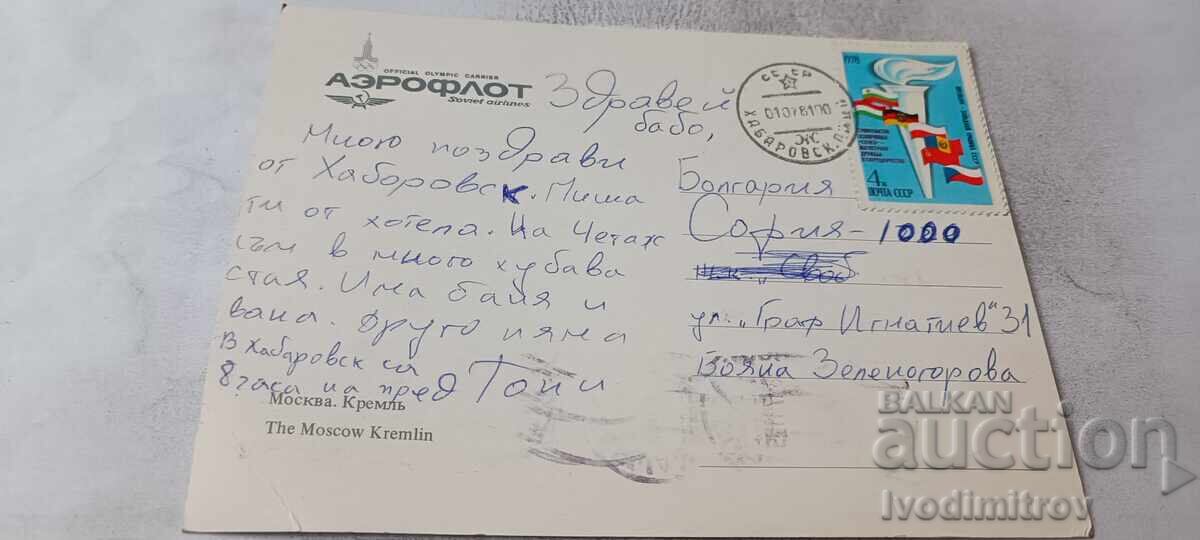 OFFICIAL OLYMPIC CARRIER
АЭРОФЛОТ
Soviet airlines
Здравей
бабо,
Много поздрави
от Хаборовск. Пиша
ти от хотела. На 4етаж
съм в много хубава
стая. Има баня и
вана. Друго няма
В Хабаровск са
8 часа на пред Тони
Москва. Кремль
The Moscow Kremlin
СССР
01 07 81
ХАБАРОВСК
1978
4к
ПОЧТА СССР
Болгария
София - 1000
ул. „Граф Игнатиев" 31
Вояна Зеленогорова
BALKAN
auction
Ivodimitrov